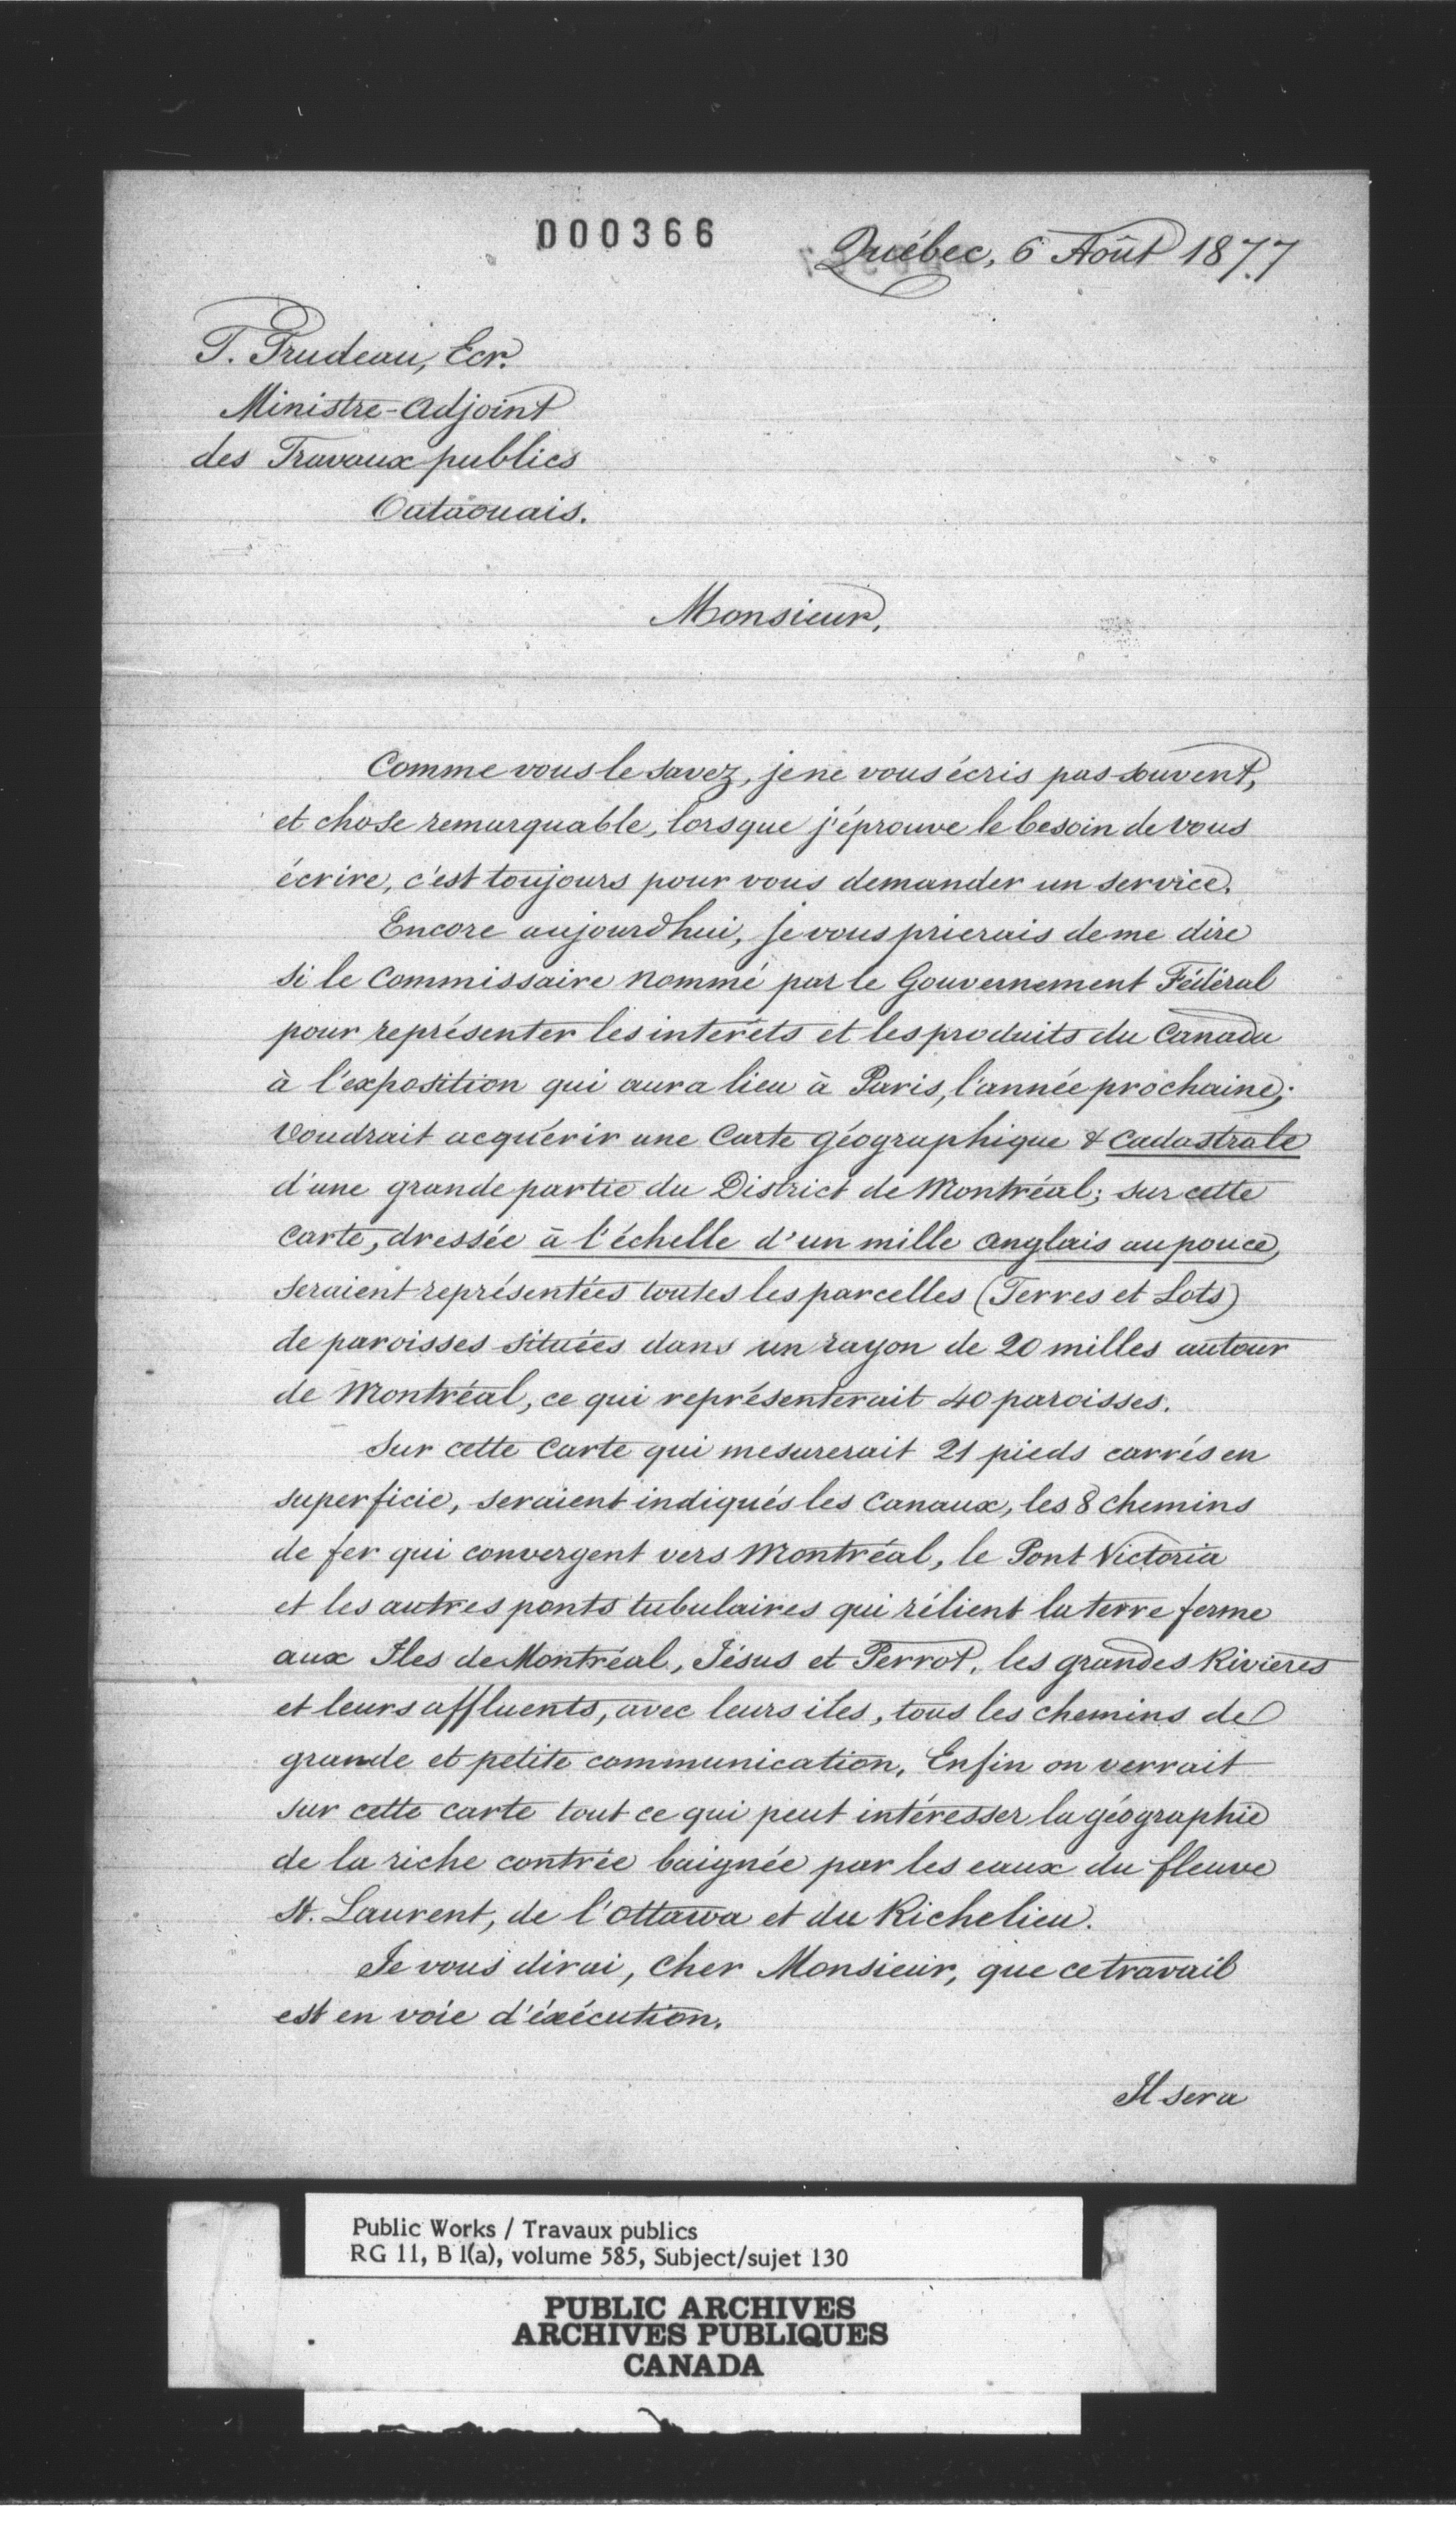 000366
Québec, 6 Août 1877
T. Trudeau, Ecr.
Ministre-Adjoint
des Travaux publics
Outaouais.
Monsieur,
Comme vous le savez, je ne vous écris pas souvent,
et chose remarquable, lorsque j'éprouve le besoin de vous
écrire, c'est toujours pour vous demander un service.
Encore aujourd'hui, je vous prierais de me dire
si le Commissaire nommé par le Gouvernement Fédéral
pour représenter les interêts et les produits du Canada
à l'exposition qui aura lieu à Paris, l'année prochaine;
voudrait acquérir une Carte géographique & cadastrale
d'une grande partie du District de Montréal; sur cette
Carte, dressée à l'échelle d'un mille anglais au pouce,
seraient représentées toutes les parcelles (Terres et Lots)
de paroisses situées dans un rayon de 20 milles autour
de Montréal, ce qui représenterait 40 paroisses.
Sur cette Carte qui mesurerait 21 pieds carrés en
superficie, seraient indiqués les Canaux, les 8 chemins
de fer qui convergent vers Montréal, le Pont Victoria
et les autres ponts tubulaires qui rélient la terre ferme
aux Iles de Montréal, Jésus et Perrot, les grandes Rivieres
et leurs affluents, avec leurs iles, tous les chemins de
grande et petite communication. Enfin on verrait
sur cette carte tout ce qui peut intéresser la géographie
de la riche contrée baignée par les eaux du fleuve
St. Laurent, de l'Ottawa et du Richelieu.
Je vous dirai, Cher Monsieur, que ce travail
est en voie d'éxécution.
Il sera
Public Works / Travaux publics
RG 11, B 1(a), volume 585, Subject/sujet 130
PUBLIC ARCHIVES
ARCHIVES PUBLIQUES
CANADA